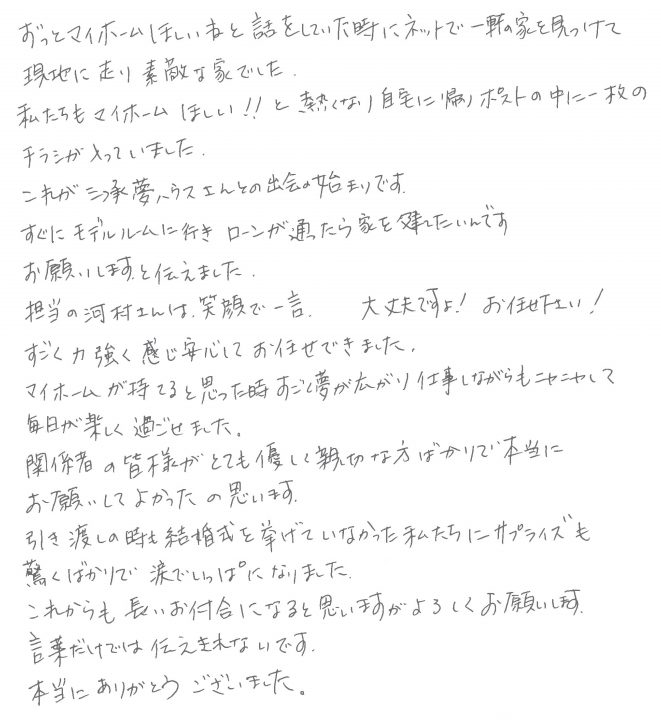 ずっとマイホームほしいねと話をしていた時にネットで一軒の家を見つけて
現地に走り素敵な家でした.
私たちもマイホームほしい!!と熱くなり自宅に帰りポストの中に一枚の
チラシが入っていました.
これが三承夢ハウスさんとの出会の始まりです.
すぐにモデルルームに行きローンが通ったら家を建てたいんです
お願いしますと伝えました.
担当の河村さんは、笑顔で一言. 大丈夫ですよ! お任せ下さい!
すごく力強く感じ安心してお任せできました.
マイホームが持てると思った時すごく夢が広がり仕事しながらもニヤニヤして
毎日が楽しく過ごせました。
関係者の皆様がとても優しく親切な方ばかりで本当に
お願いしてよかったの思います.
引き渡しの時も結婚式を挙げていなかった私たちにサプライズも
驚くばかりで涙でいっぱいになりました.
これからも長いお付合になると思いますがよろしくお願いします.
言葉だけでは伝えきれないです.
本当にありがとうございました。